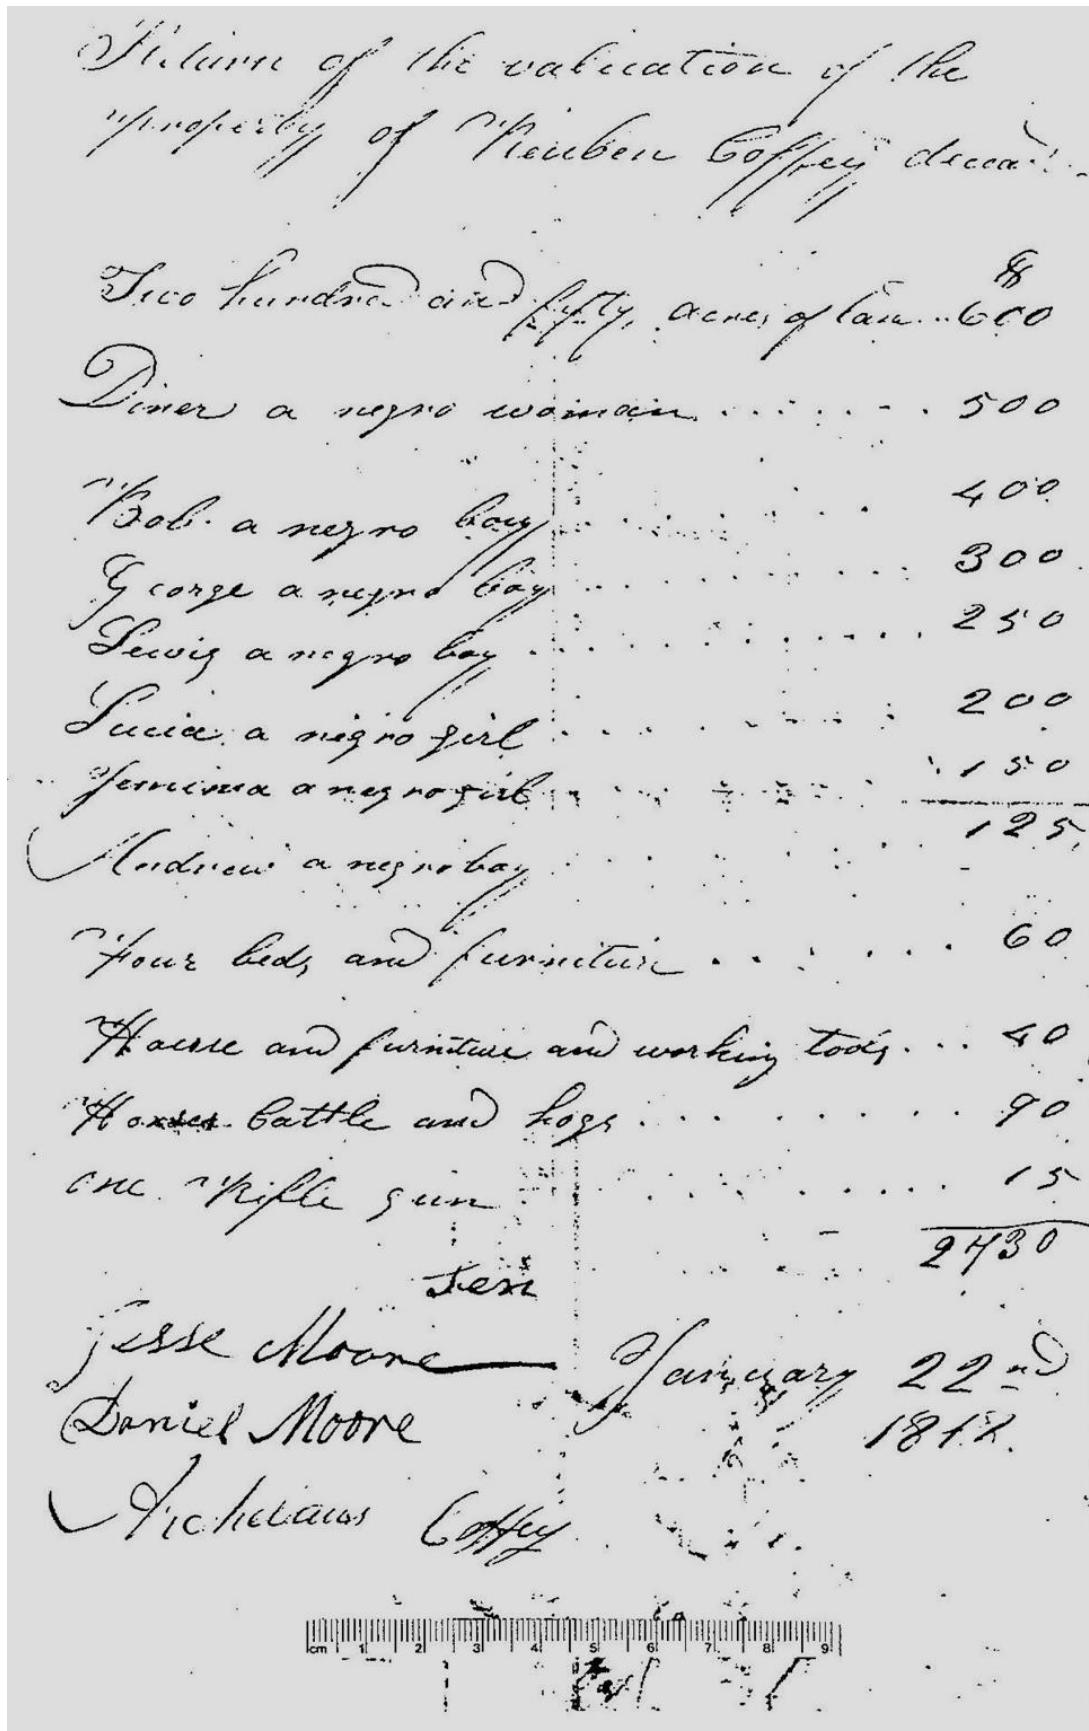 Return of the valuation of the
property of Reuben Coffey decead
$
Two hundred and fifty acres of lan .. 600
Diner a negro woman . . . . . . . 500
Bob. a negro boy . . . . . . . 400
George a negro boy . . . . . . . . 300
Lewis a negro boy . . . . . . . . . 250
Lucia a negro girl . . . . . . . 200
Jemima a negro girl . . . . . . 150
Andrew a negro boy . . . . . . . 125
Four beds and furniture . . . . . . . 60
House and furniture and working tools . . . 40
Horses Cattle and hogs . . . . . . . . 90
one Rifle gun . . . . . . . . 15
2730
Jesse Moore January 22nd
Daniel Moore 1812.
Archelaus Coffey
cm 1 2 3 4 5 6 7 8 9